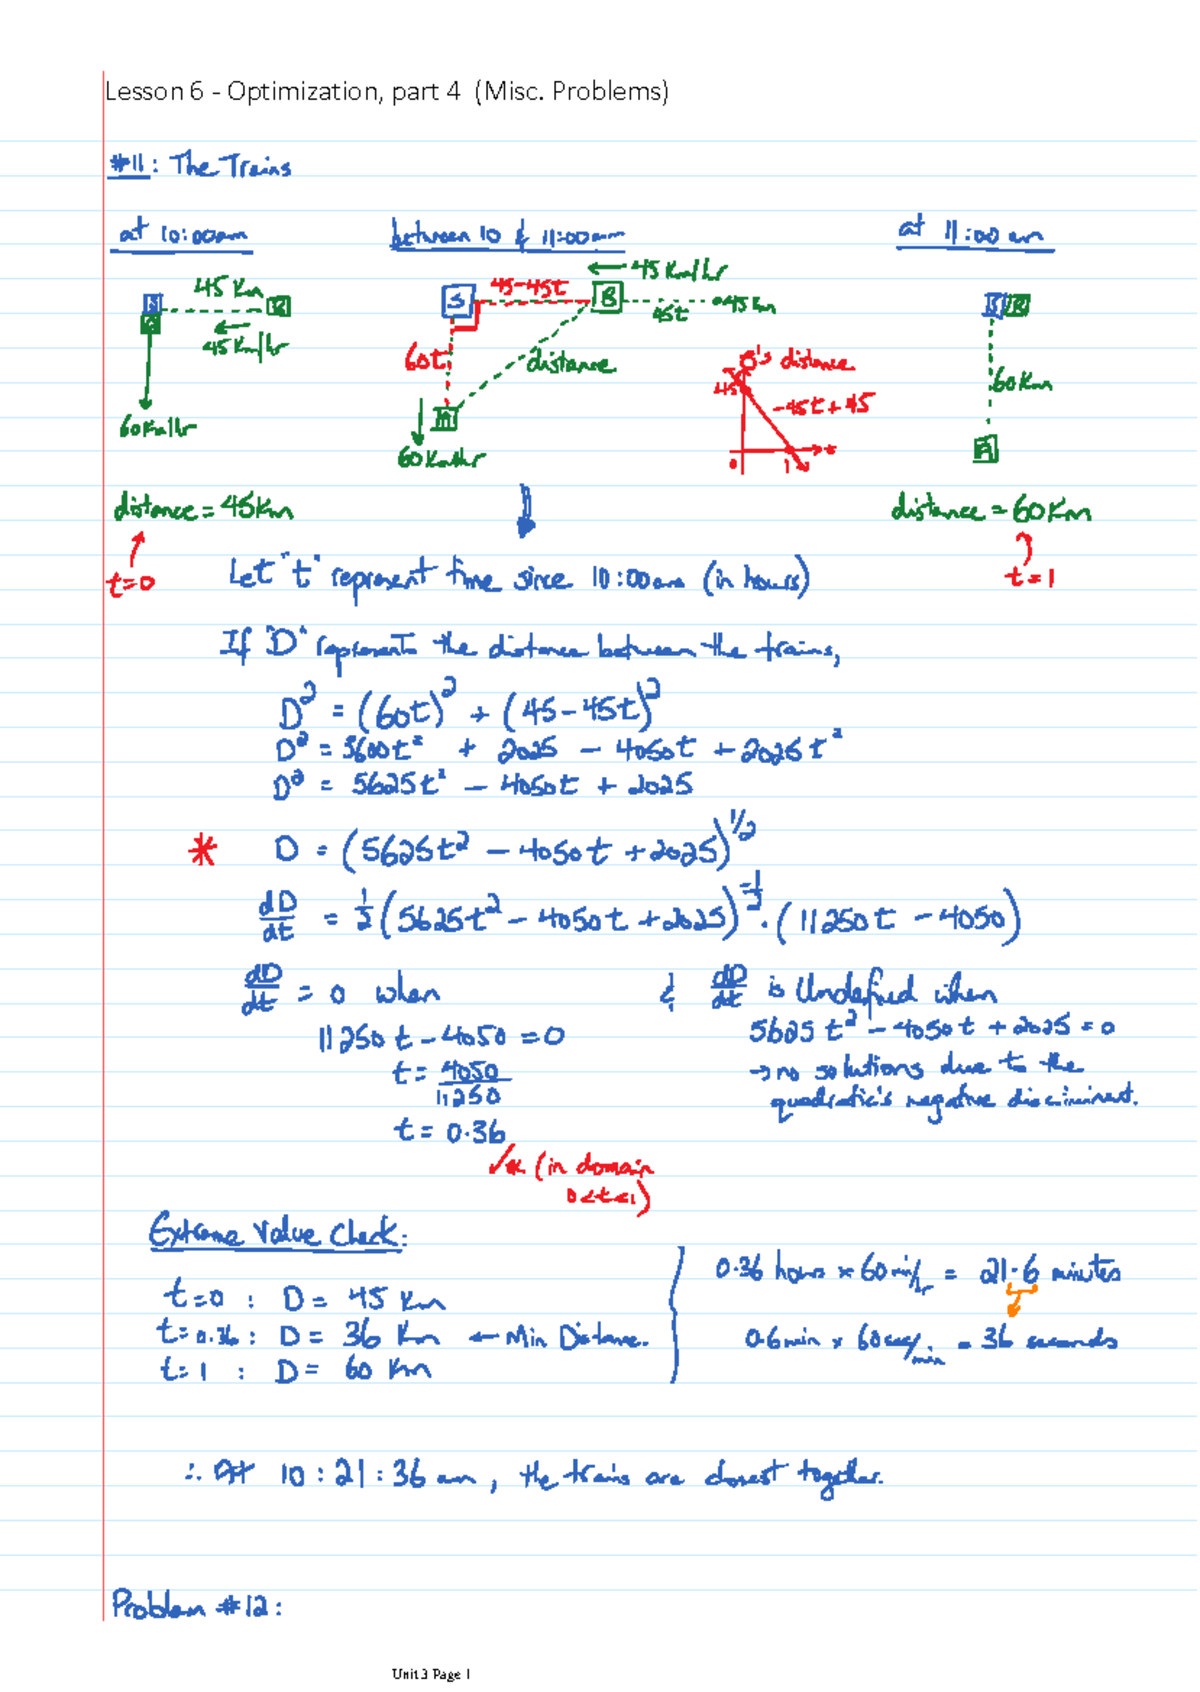 Lesson 6 - Optimization, part 4 (Misc. Problems)
#11: The Trains
at 10:00am
between 10 & 11:00am
at 11:00 am
45 Km
45 Km/hr
60 Km/hr
← 45 Km/hr
S
45-45t
B
45t
45 Km
60t
distance
A
60 Km/hr
B's distance
45
-45t+45
t
0
1
60 Km
A
distance = 45 Km
distance = 60 Km
t=0
t=1
Let "t" represent time since 10:00am (in hours)
If "D" represents the distance between the trains,
D² = (60t)² + (45-45t)²
D² = 3600t² + 2025 - 4050t + 2025t²
D² = 5625t² - 4050t + 2025
* D = (5625t² - 4050t + 2025)^1/2
dD/dt = 1/2 (5625t² - 4050t + 2025)^-1/2 · (11250t - 4050)
dD/dt = 0 when
& dD/dt is Undefined when
11250t - 4050 = 0
5625t² - 4050t + 2025 = 0
t = 4050/11250
→ no solutions due to the
quadratic's negative discriminant.
t = 0.36
(in domain
0<t<1)
Extreme Value Check:
t=0 : D = 45 Km
t=0.36 : D = 36 Km ← Min Distance.
t=1 : D = 60 Km
0.36 hours × 60 min/hr = 21.6 minutes
0.6 min × 60 sec/min = 36 seconds
∴ At 10:21:36 am, the trains are closest together.
Problem #12:
Unit 3 Page 1